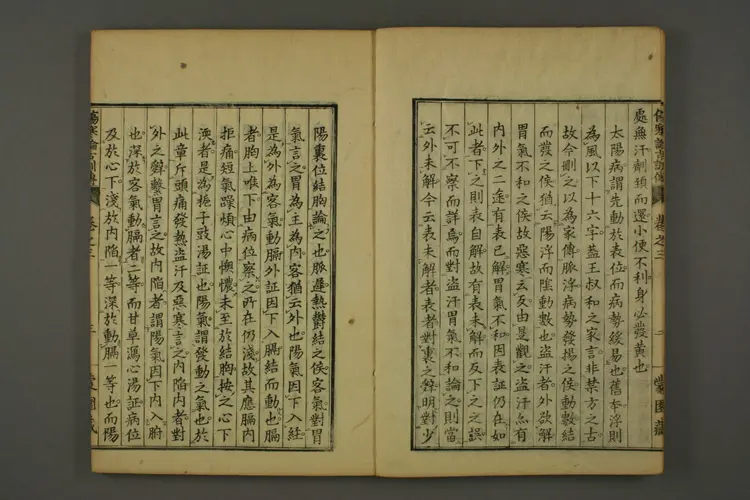 處無汗劑頸而還小便不利身必發黃也
太陽病謂先動於表位而病勢緩易也舊本浮則
為風以下十六字蓋王叔和之家言非禁方之古
故今刪之以為家傳脉浮病勢發揚之候動數結
而發之候猶云陽浮而陰動數也盜汗者外欲解
胃氣不和之候故惡寒云反由是觀之盜汗亦有
內外之二途有表已解胃氣不和因表証仍在如
此者下之則表自解故有表未解而反下之之誤
不可不察而詳焉而對盜汗胃氣不和論之則當
云外未解今云表未解者表者對裏之辭明對少
陽裏位結胸論之也脈遲熱鬱結之候客氣對胃
氣言之胃為主為內客猶云外也陽氣因下入經
是為外為客氣動膈外証因下入膈結而動也膈
者胸上唯下由病位察之所在仍淺故其應膈內
拒痛短氣躁煩心中懊憹未至於結胸按之心下
濡者是為梔子豉湯証也陽氣謂發動之氣也於
此章斥頭痛發熱盜汗及惡寒言之內陷內者對
外之辭繫胃言之故內陷者謂陽氣因下內入腑
也深於客氣動膈者二等而甘草瀉心湯証病位
及於心下淺於內陷一等深於動膈一等也而陽
傷寒論
卷之三
二
卷之三